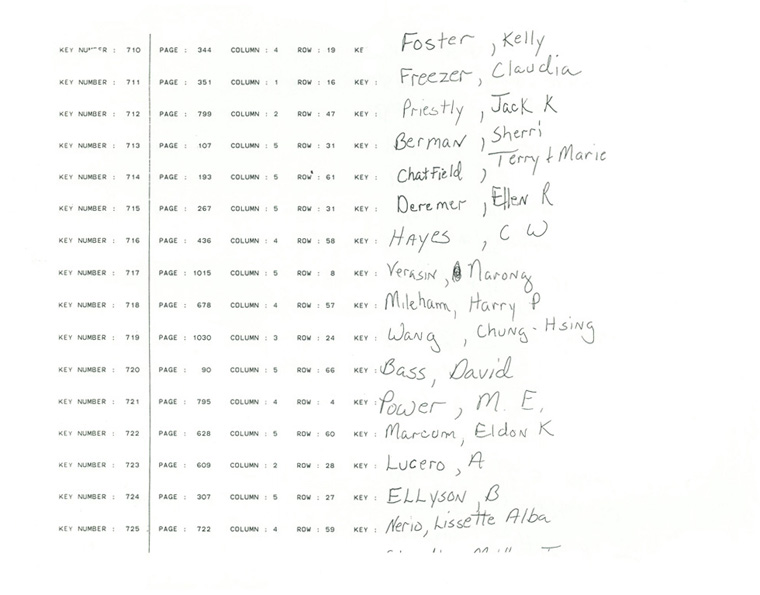 KEY NUMBER : 710 PAGE : 344 COLUMN : 4 ROW : 19 KE Foster , Kelly
KEY NUMBER : 711 PAGE : 351 COLUMN : 1 ROW : 16 KEY : Freezer, Claudia
KEY NUMBER : 712 PAGE : 799 COLUMN : 2 ROW : 47 KEY : Priestly , Jack K
KEY NUMBER : 713 PAGE : 107 COLUMN : 5 ROW : 31 KEY : Berman , Sherri
KEY NUMBER : 714 PAGE : 193 COLUMN : 5 ROW : 61 KEY : Chatfield , Terry & Marie
KEY NUMBER : 715 PAGE : 267 COLUMN : 5 ROW : 31 KEY : Deremer , Ellen R
KEY NUMBER : 716 PAGE : 436 COLUMN : 4 ROW : 58 KEY : Hayes , C W
KEY NUMBER : 717 PAGE : 1015 COLUMN : 5 ROW : 8 KEY : Verasin, Narong
KEY NUMBER : 718 PAGE : 678 COLUMN : 4 ROW : 57 KEY : Mileham, Harry P
KEY NUMBER : 719 PAGE : 1030 COLUMN : 3 ROW : 24 KEY : Wang , Chung-Hsing
KEY NUMBER : 720 PAGE : 90 COLUMN : 5 ROW : 66 KEY : Bass, David
KEY NUMBER : 721 PAGE : 795 COLUMN : 4 ROW : 4 KEY : Power, M. E.
KEY NUMBER : 722 PAGE : 628 COLUMN : 5 ROW : 60 KEY : Marcum, Eldon K
KEY NUMBER : 723 PAGE : 609 COLUMN : 2 ROW : 28 KEY : Lucero, A
KEY NUMBER : 724 PAGE : 307 COLUMN : 5 ROW : 27 KEY : ELLYSON, B
KEY NUMBER : 725 PAGE : 722 COLUMN : 4 ROW : 59 KEY : Nerio, Lissette Alba